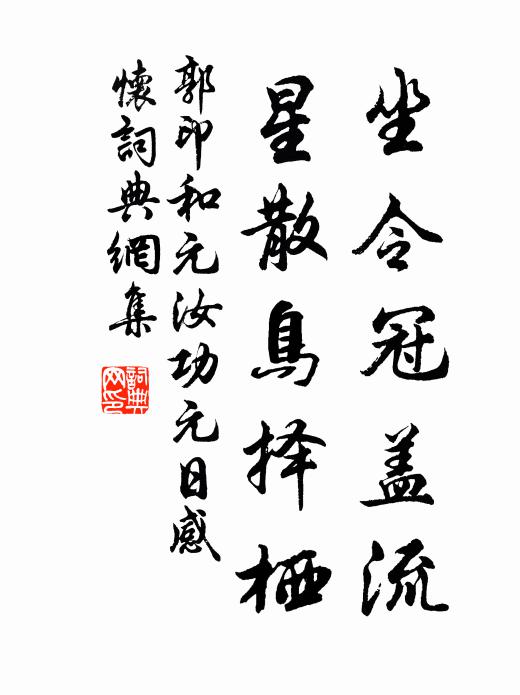 坐令冠盖流
星散鳥择栖
郭印和元汝功元日感
懷詞典網集
詞典
网印